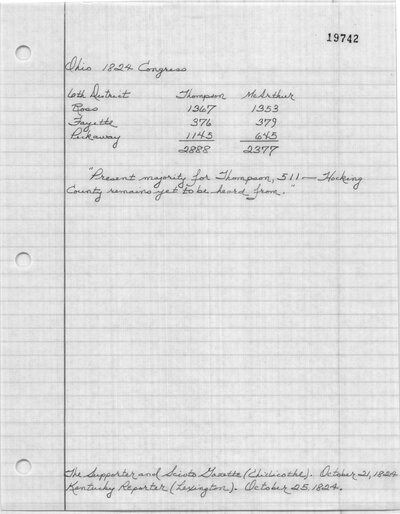 19742
Ohio 1824 Congress
6th District Thompson McArthur
Ross 1367 1353
Fayette 376 379
Pickaway 1145 645
2888 2377
"Present majority for Thompson, 511 — Hocking
County remains yet to be heard from."
The Supporter and Scioto Gazette (Chillicothe). October 21, 1824
Kentucky Reporter (Lexington). October 25, 1824.